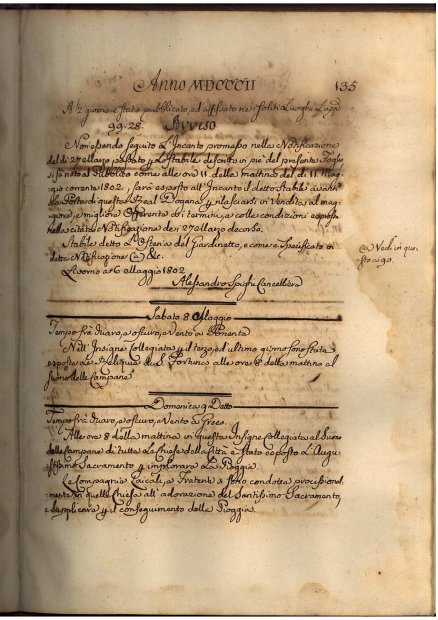 Anno MDCCCII
135
A 12 giorna è stato pubblicato, ed affisso ne i soliti Luoghi
99. 28. Avviso
Non essendo seguito l'Incanto promesso nella Notificazione
del dì 27 Marzo passato p. lo Stabile descritto in piè del presente Foglio
si fa noto al Pubblico come alle ore 11 della mattina del dì 11 Mag=
gio corrente 1802, sarà esposto all'Incanto il detto Stabile avanti
la Porta di questa Real Dogana, e rilasciarsi in Vendita al mag=
giore, e migliore Offerente coi termini, e colle condizioni espresse
nella citata Notificazione de i 27 Marzo decorso.
Stabile detto l'Osteria del Giardinetto, e come è Specificato in
detta Notificazione (a) &c.
Livorno a 6 Maggio 1802
Alessandro Cancelliere
(a) Vedi in que
sto a
Sabato 8 Maggio
Tempo frà chiaro, e oscuro, e Vento a Ponente
Nell'Insigne Collegiata p. il terzo, ed ultimo giorno sono state
esposte le Reliquie di S. Fortuna alle ore 8 della mattina al
suono delle Campane
Domenica 9 Detto
Tempo frà chiaro, e oscuro, e Vento a Greco.
Alle ore 8 della mattina in questa Insigne Collegiata al Suono
delle Campane di tutte le Chiese della Città è stato esposto l'Augu=
stissimo Sacramento p. implorare la Pioggia.
Le Compagnie Laicali, e Fratenti si sono condotte procissional=
mente in quella Chiesa all'adorazione del Santissimo Sacramento,
e supplicare p. il conseguimento della Pioggia.